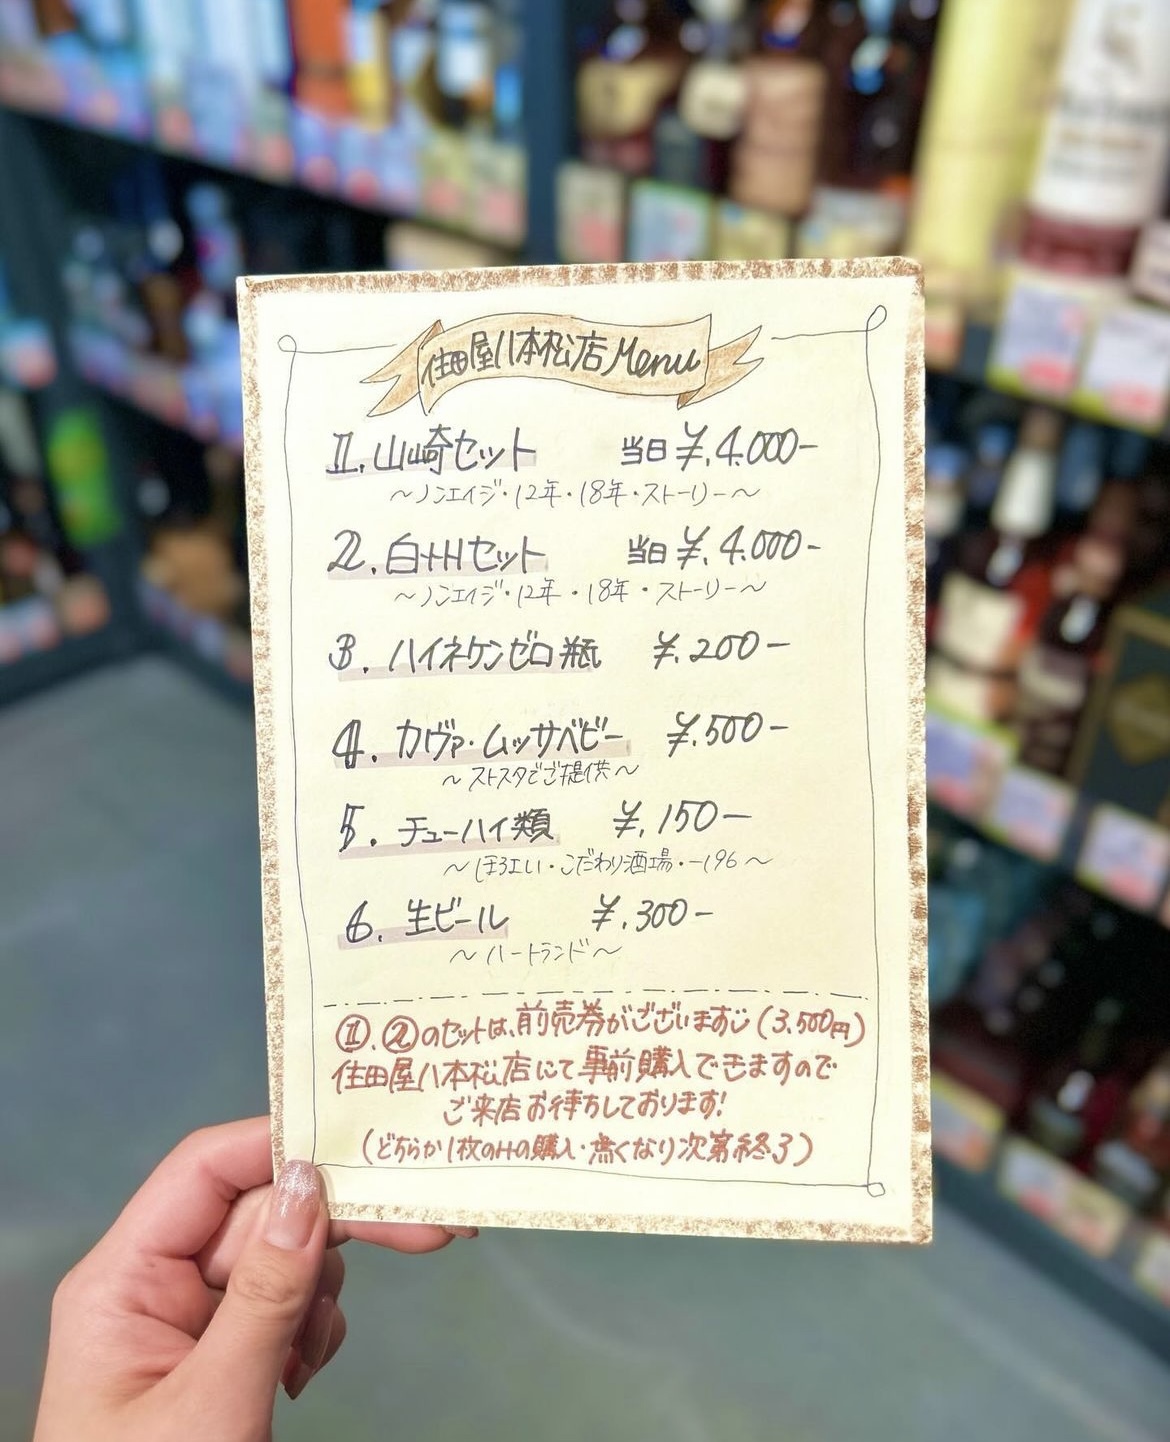 住田屋八本松店Menu
1. 山崎セット 当日 ¥.4.000-
〜ノンエイジ・12年・18年・ストーリー〜
2. 白州セット 当日 ¥.4.000-
〜ノンエイジ・12年・18年・ストーリー〜
3. ハイネケンゼロ瓶 ¥.200-
4. カヴァ・ムッサベビー ¥.500-
〜ストスタでご提供〜
5. チューハイ類 ¥.150-
〜ほろよい・こだわり酒場・-196〜
6. 生ビール ¥.300-
〜ハートランド〜
①.②のセットは、前売券がございます(3.500円)
住田屋八本松店にて事前購入できますので
ご来店お待ちしております!
(どちらか1枚のみの購入・無くなり次第終了)